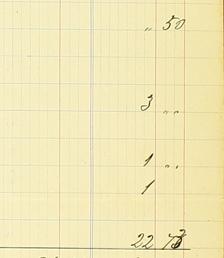 „ 50
3 „
1 „
1
22